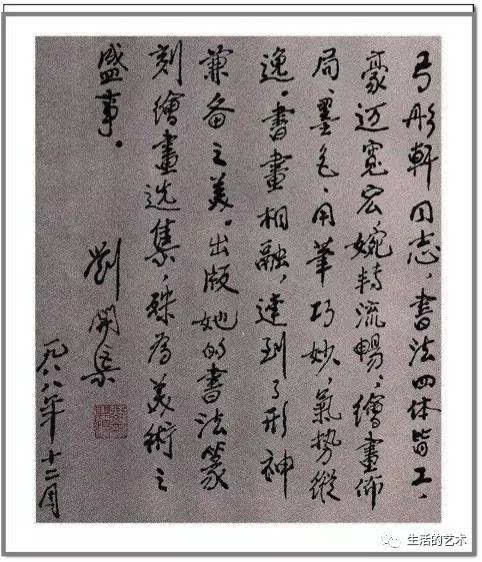 弓彤軒同志，書法四体皆工，
豪迈寬宏，婉轉流暢；繪畫佈
局、墨色、用筆巧妙，氣势縱
逸。書畫相融，達到了形神
兼备之美。出版她的書法篆
刻繪畫选集，殊为美術之
盛事。
劉開渠
一九八八年十二月
生活的艺术